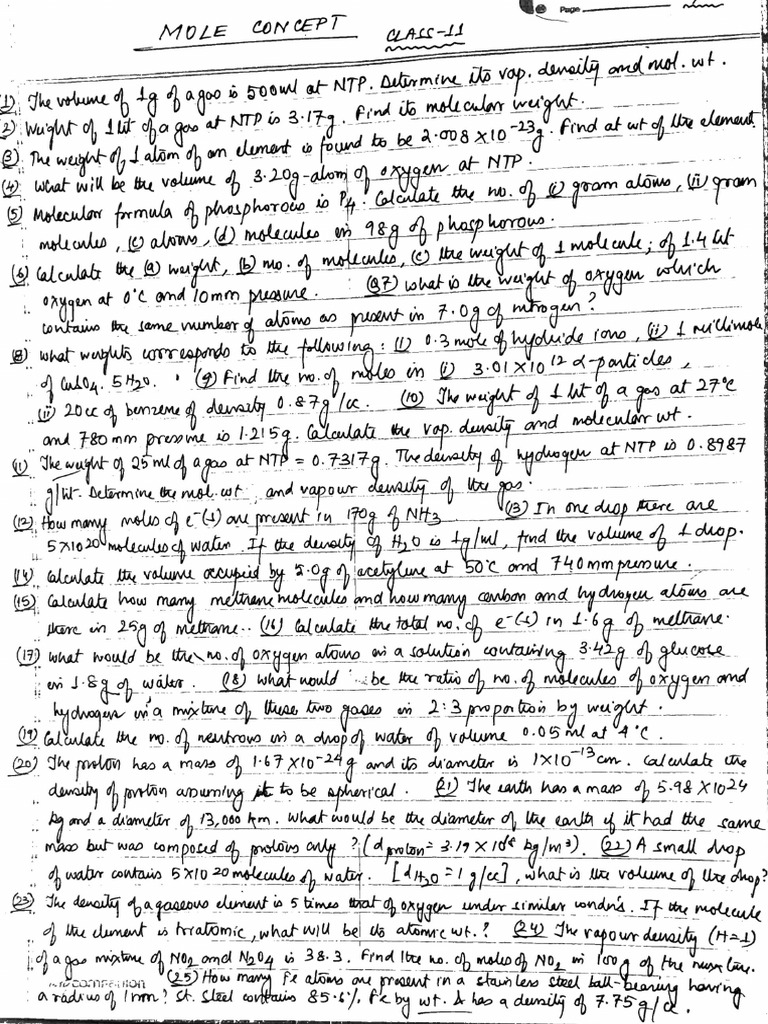 Page
MOLE CONCEPT CLASS-11
(1) The volume of 1g of a gas is 500ml at NTP. Determine its vap. density and mol. wt.
(2) Weight of 1 lit of a gas at NTP is 3.17g. Find its molecular weight.
(3) The weight of 1 atom of an element is found to be 2.008 X 10-23g. Find at wt of the element.
(4) What will be the volume of 3.20g-atom of oxygen at NTP.
(5) Molecular formula of phosphorous is P4. Calculate the no. of (i) gram atoms, (ii) gram
molecules, (c) atoms, (d) molecules in 98g of phosphorous.
(6) Calculate the (a) weight, (b) no. of molecules, (c) the weight of 1 molecule; of 1.4 lit
oxygen at 0°C and 10mm pressure. (Q7) What is the weight of oxygen which
contains the same number of atoms as present in 7.0g of nitrogen?
(8) What weights corresponds to the following: (i) 0.3 mole of hydride ions, (ii) 1 millimole
of CuSO4. 5H2O. (9) Find the no. of moles in (i) 3.01 X 10 12 α-particles,
(ii) 20cc of benzene of density 0.87g/cc. (10) The weight of 1 lit of a gas at 27°C
and 780 mm pressure is 1.215g. Calculate the vap. density and molecular wt.
(11) The weight of 25ml of a gas at NTP = 0.7317g. The density of hydrogen at NTP is 0.8987
g/lit. Determine the mol. wt and vapour density of the gas.
(12) How many moles of e-(s) are present in 170g of NH3 (13) In one drop there are
5X10 20 molecules of water. If the density of H2O is 1g/ml, find the volume of 1 drop.
(14) Calculate the volume occupied by 5.0g of acetylene at 50°C and 740mm pressure.
(15) Calculate how many methane molecules and how many carbon and hydrogen atoms are
there in 25g of methane. (16) Calculate the total no. of e-(s) in 1.6g of methane.
(17) What would be the no. of oxygen atoms in a solution containing 3.42g of glucose
in 1.8g of water. (18) What would be the ratio of no. of molecules of oxygen and
hydrogen in a mixture of these two gases in 2:3 proportion by weight.
(19) Calculate the no. of neutrons in a drop of water of volume 0.05 ml at 4°C.
(20) The proton has a mass of 1.67X10-24g and its diameter is 1X10-13cm. Calculate the
density of proton assuming it to be spherical. (21) The earth has a mass of 5.98 X10 24
kg and a diameter of 13,000 km. What would be the diameter of the earth if it had the same
mass but was composed of protons only? (d proton = 3.19 X 10 kg/m3). (22) A small drop
of water contains 5X10 20 molecules of water. [dH2O = 1 g/cc], what is the volume of the drop?
(23) The density of a gaseous element is 5 times that of oxygen under similar condns. If the molecule
of the element is triatomic, what will be its atomic wt.? (24) The vapour density (H=1)
of a gas mixture of NO2 and N2O4 is 38.3. Find the no. of moles of NO2 in 100g of the mixture.
(25) How many Fe atoms are present in a stainless steel ball-bearing having
a radius of 1 mm? St. Steel contains 85.6% Fe by wt. & has a density of 7.75g/cc.